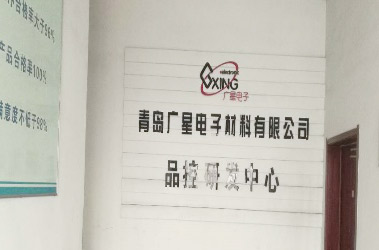 合格率大于96%
产品合格率100%
满意度不低于98%
XING
广星电子
青岛广星电子材料有限公司
品控研发中心